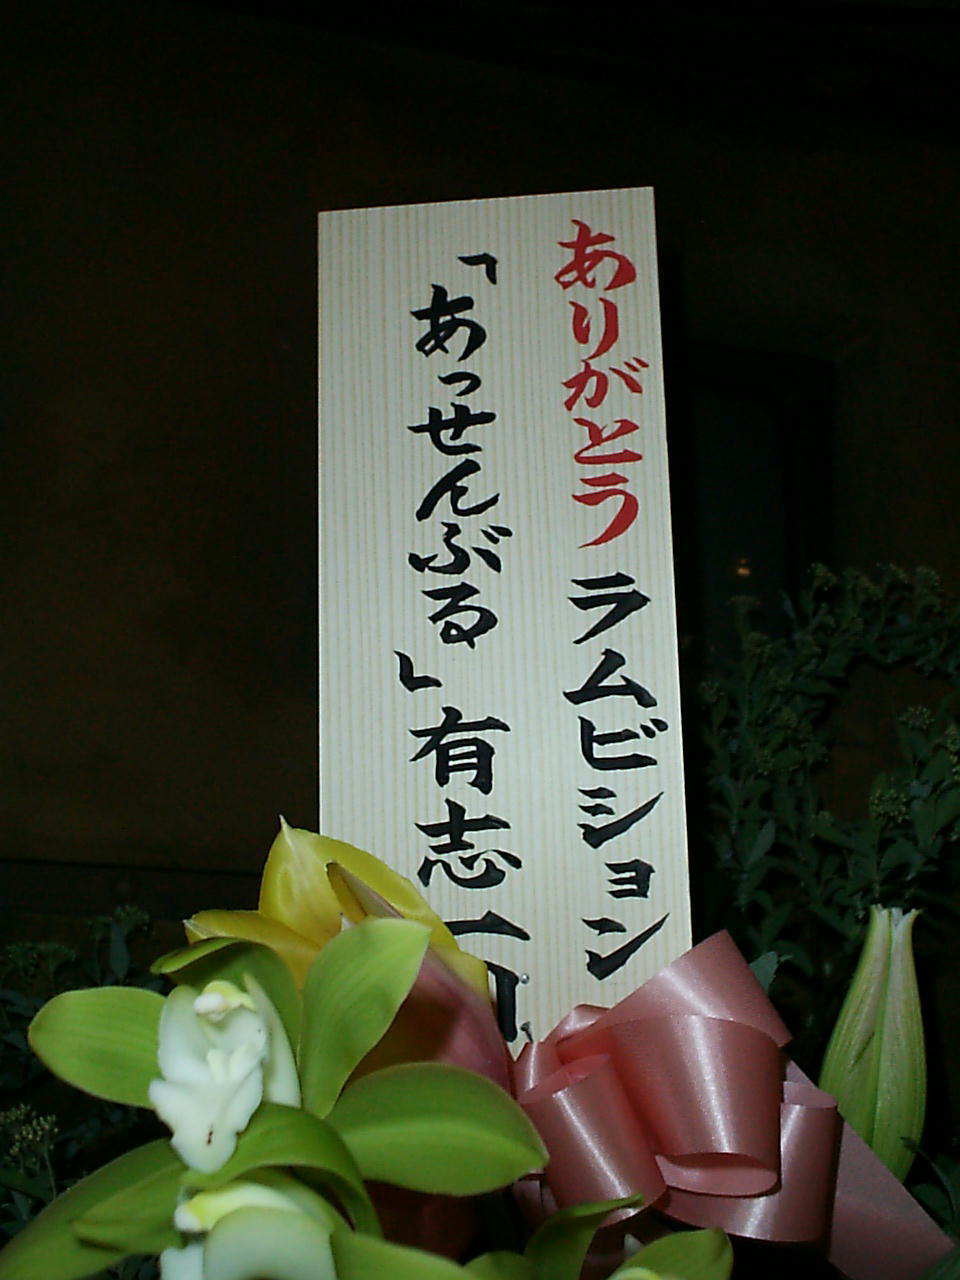 ありがとう ラムビション
「あっせんぶる」有志一同